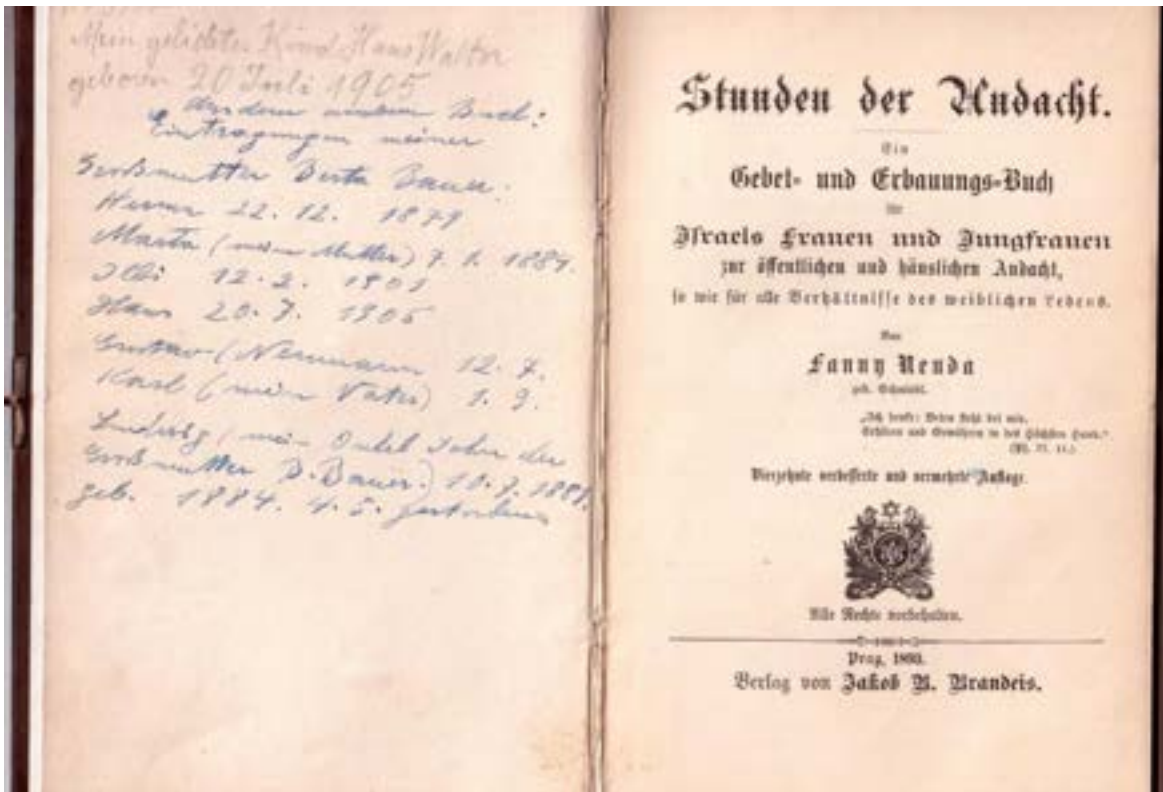 Mein geliebtes Kind Hans Walter
geboren 20 Juli 1905
Aus dem Buch:
Eintragungen meiner
Großmutter Berta Bauer.
22. 12. 1879
Marta (meine Mutter) 7. 1. 1884.
12. 2. 1901
Hans 20. 7. 1905
Gustav (Neumann 12. 7.
Karl (mein Vater) 1. 9.
Ludwig (mein Onkel Sohn der
Großmutter B. Bauer.) 10. 7.
geb. 1884. 4. 5. gestorben
Stunden der Andacht.
Ein
Gebet- und Erbauungs-Buch
für
Israels Frauen und Jungfrauen
zur öffentlichen und häuslichen Andacht,
so wie für alle Verhältnisse des weiblichen Lebens.
Von
Fanny Neuda
geb. Schmiedl.
Vierzehnte verbesserte und vermehrte Auflage.
Alle Rechte vorbehalten.
Prag,
Verlag von Jakob B. Brandeis.